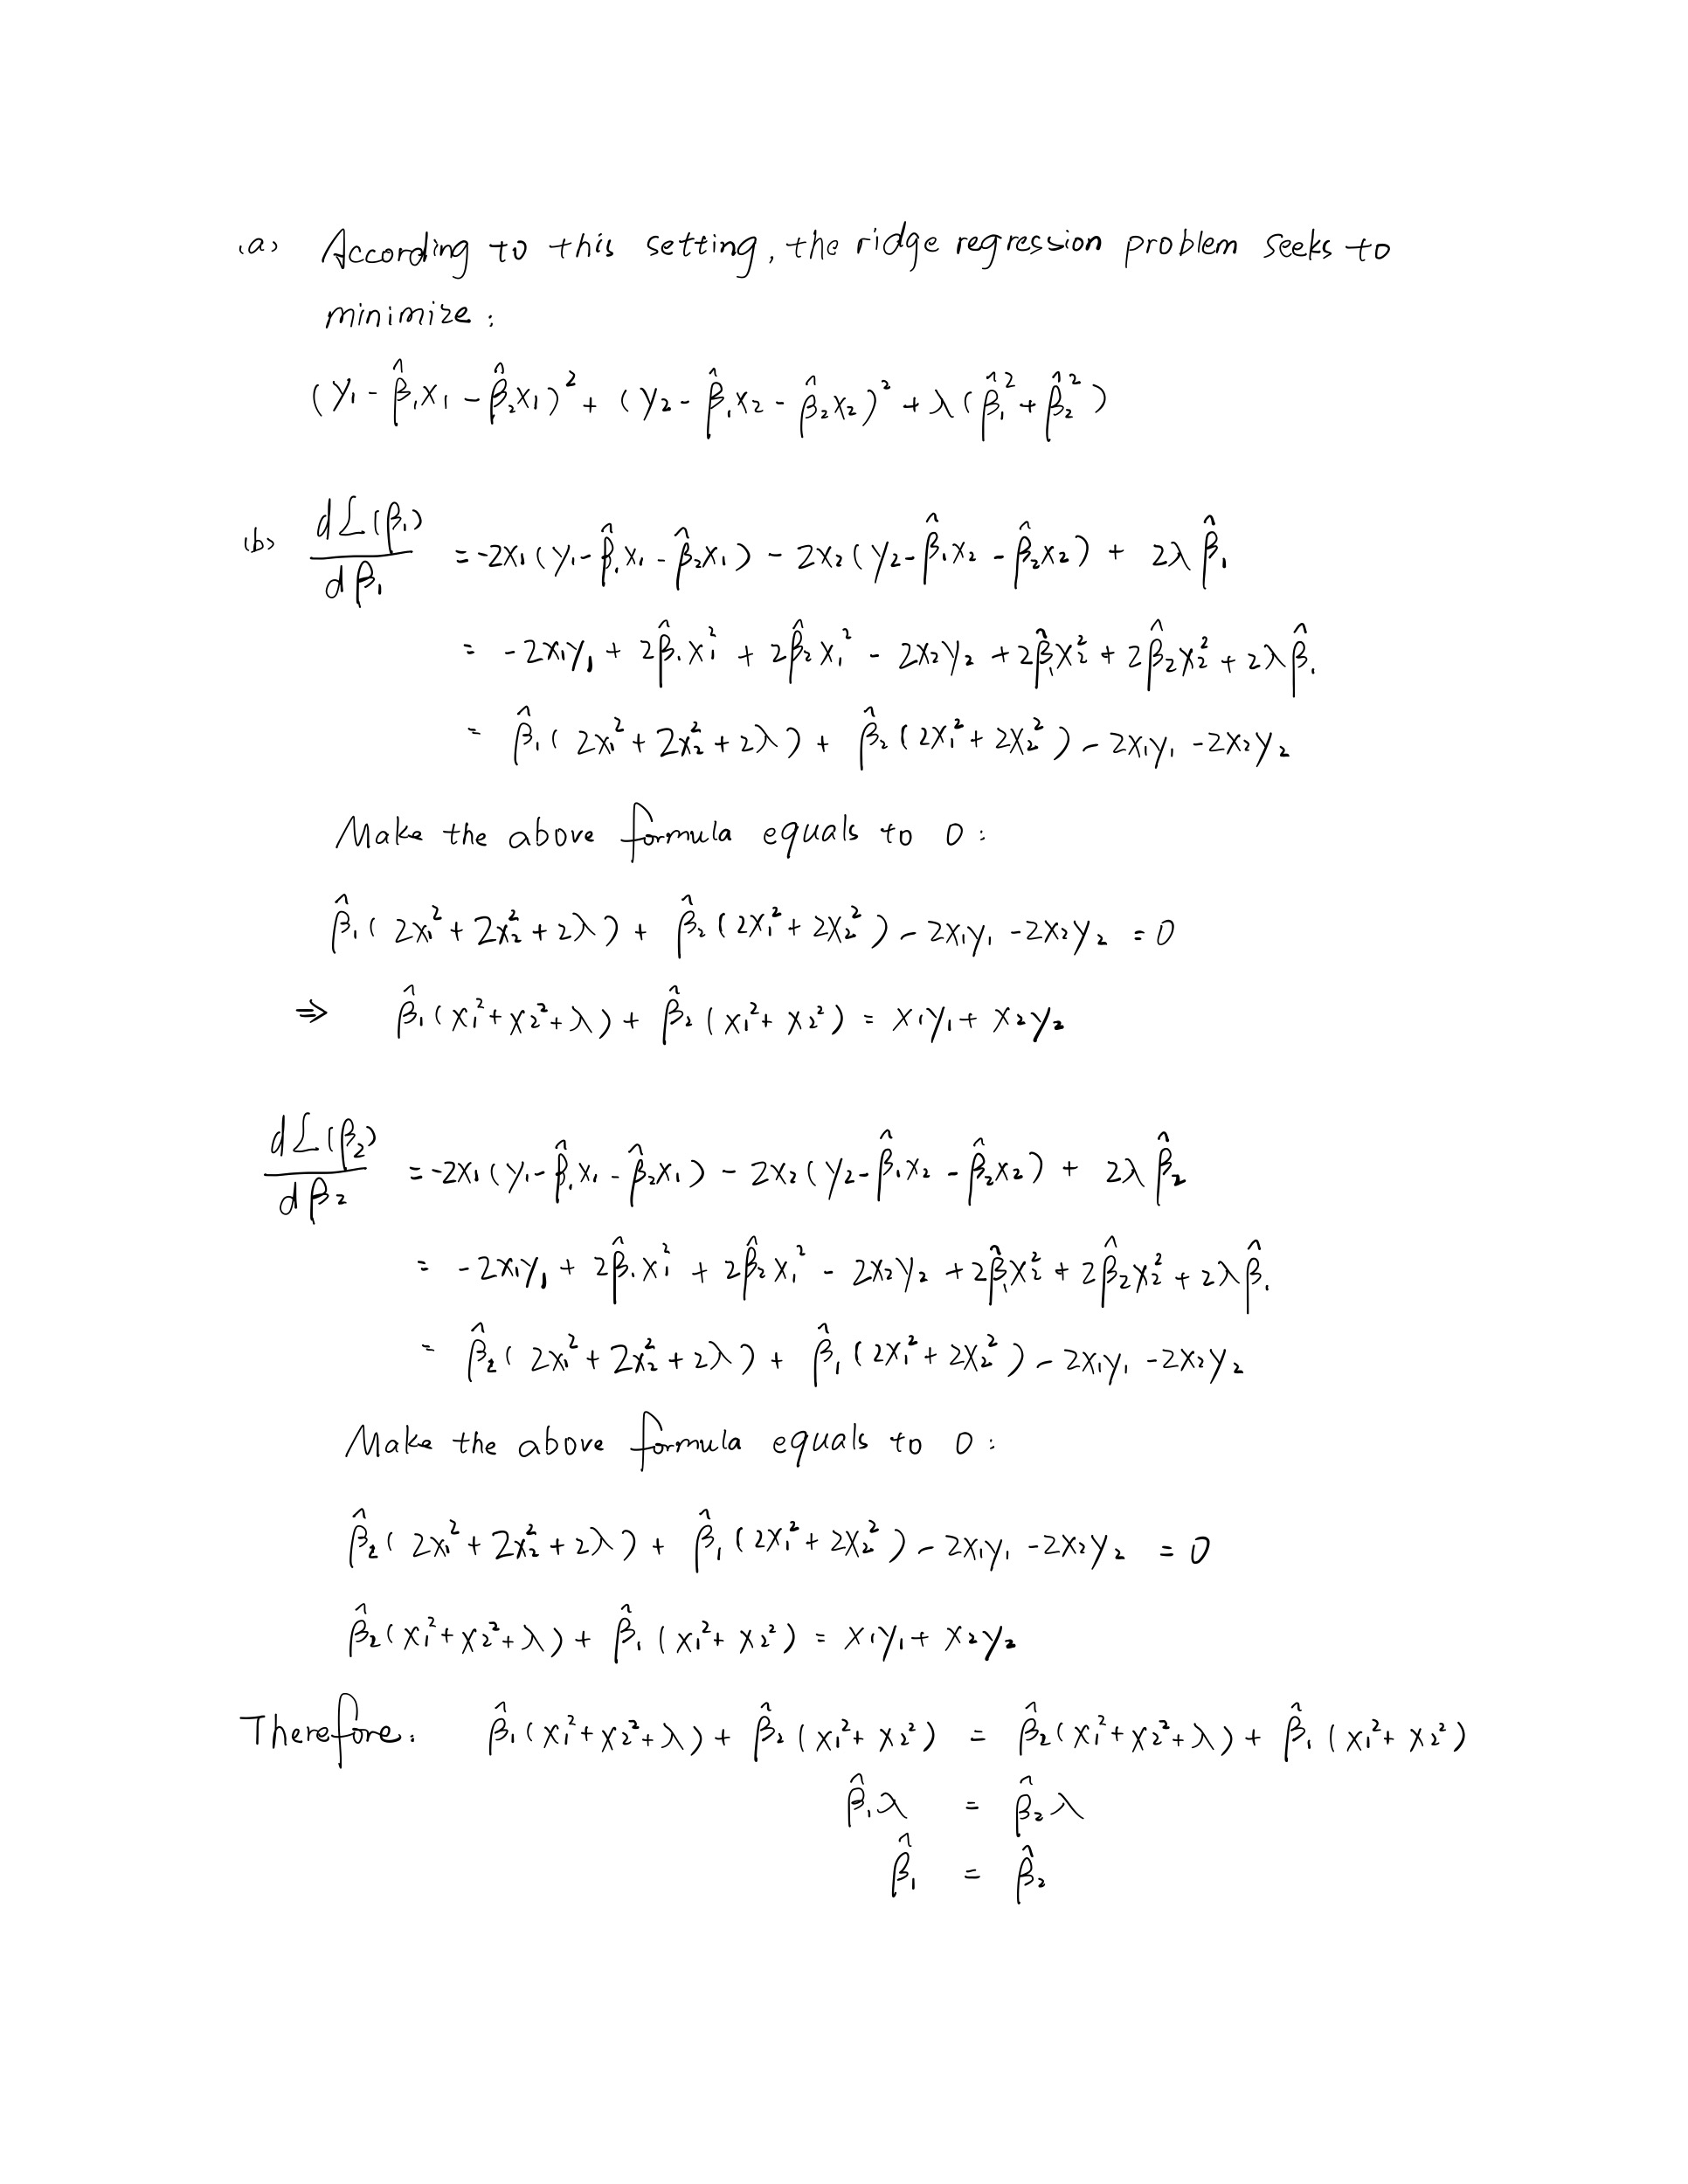 (a) According to this setting, the ridge regression problem seeks to
minimize:
(y₁ - β̂₁x₁ - β̂₂x₁)² + (y₂ - β̂₁x₂ - β̂₂x₂)² + λ(β̂₁² + β̂₂²)
(b) dL(β₁)/dβ₁ = -2x₁(y₁ - β̂₁x₁ - β̂₂x₁) - 2x₂(y₂ - β̂₁x₂ - β̂₂x₂) + 2λβ̂₁
= -2x₁y₁ + 2β̂₁x₁² + 2β̂₂x₁² - 2x₂y₂ + 2β̂₁x₂² + 2β̂₂x₂² + 2λβ̂₁
= β̂₁(2x₁² + 2x₂² + 2λ) + β̂₂(2x₁² + 2x₂²) - 2x₁y₁ - 2x₂y₂
Make the above formula equals to 0:
β̂₁(2x₁² + 2x₂² + 2λ) + β̂₂(2x₁² + 2x₂²) - 2x₁y₁ - 2x₂y₂ = 0
⇒ β̂₁(x₁² + x₂² + λ) + β̂₂(x₁² + x₂²) = x₁y₁ + x₂y₂
dL(β₂)/dβ₂ = -2x₁(y₁ - β̂₁x₁ - β̂₂x₁) - 2x₂(y₂ - β̂₁x₂ - β̂₂x₂) + 2λβ̂₂
= -2x₁y₁ + 2β̂₁x₁² + 2β̂₂x₁² - 2x₂y₂ + 2β̂₁x₂² + 2β̂₂x₂² + 2λβ̂₁
= β̂₂(2x₁² + 2x₂² + 2λ) + β̂₁(2x₁² + 2x₂²) - 2x₁y₁ - 2x₂y₂
Make the above formula equals to 0:
β̂₂(2x₁² + 2x₂² + 2λ) + β̂₁(2x₁² + 2x₂²) - 2x₁y₁ - 2x₂y₂ = 0
β̂₂(x₁² + x₂² + λ) + β̂₁(x₁² + x₂²) = x₁y₁ + x₂y₂
Therefore: β̂₁(x₁² + x₂² + λ) + β̂₂(x₁² + x₂²) = β̂₂(x₁² + x₂² + λ) + β̂₁(x₁² + x₂²)
β̂₁λ = β̂₂λ
β̂₁ = β̂₂